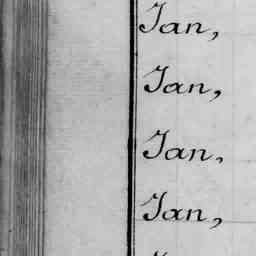 Jan,
Jan,
Jan,
Jan,